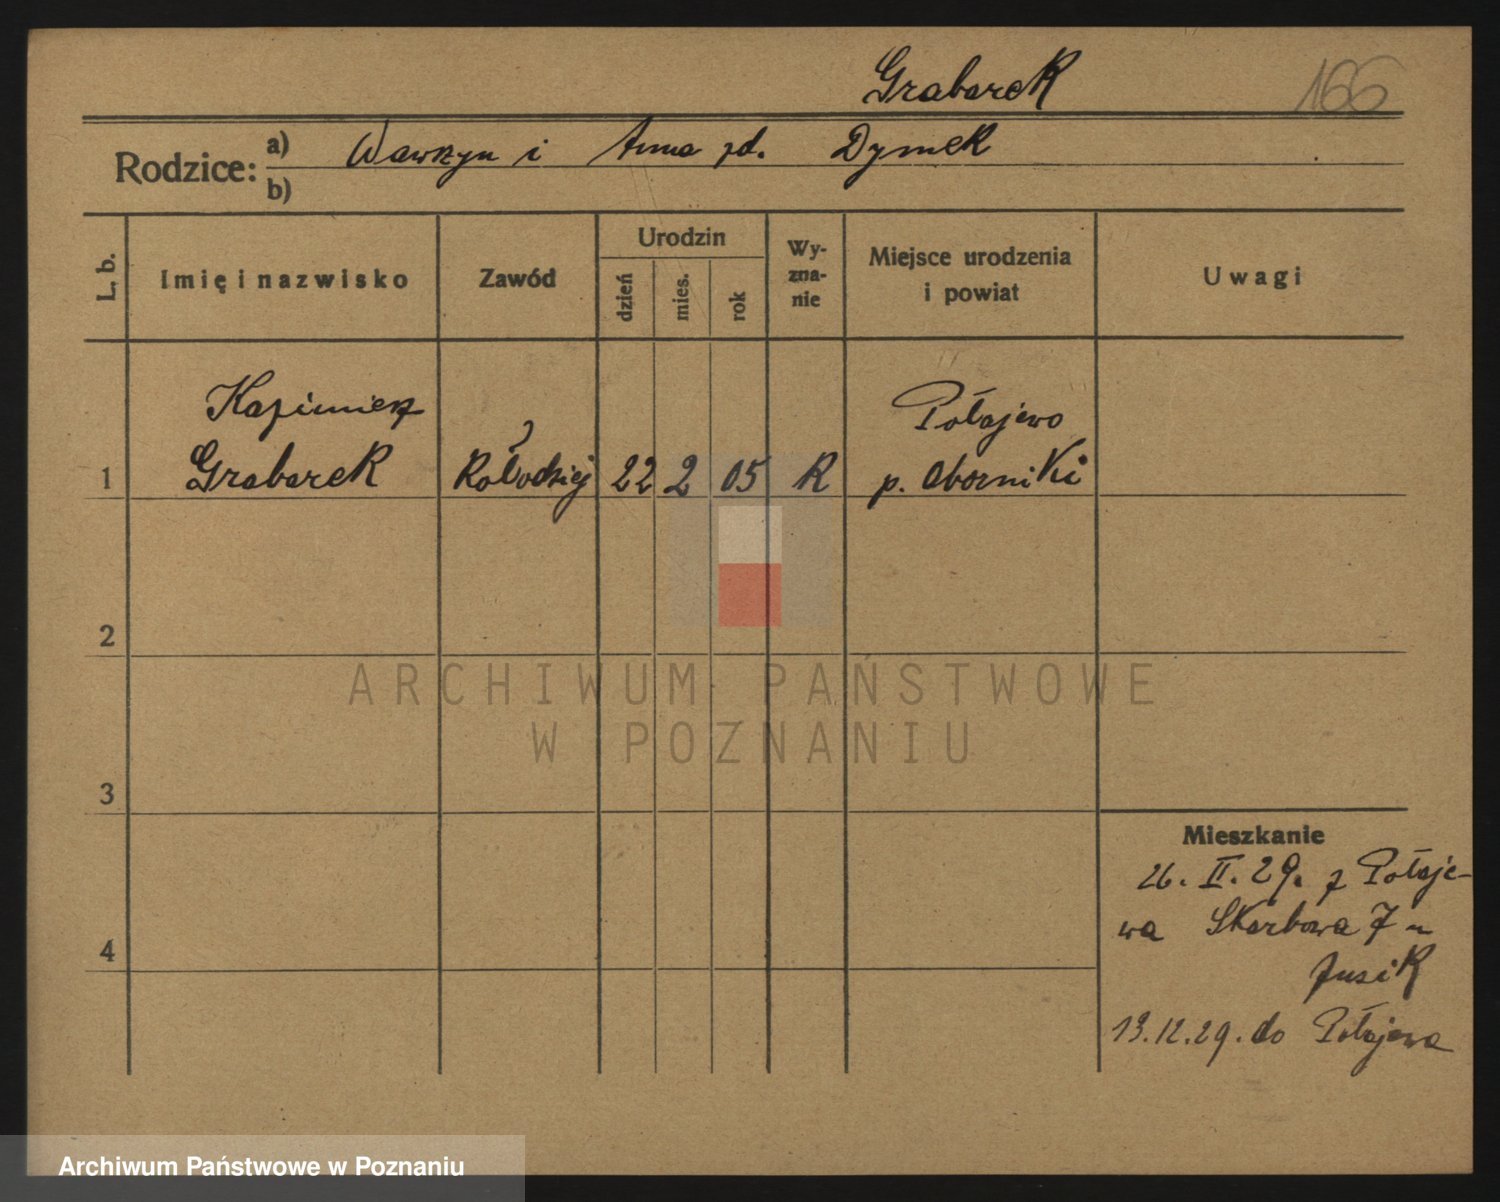 Grabarek 166
Rodzice: a) Wawrzyn i Anna zd. Dymek
b)
L. b. Imię i nazwisko Zawód Urodzin dzień mies. rok Wy-
zna-
nie Miejsce urodzenia
i powiat Uwagi
Kazimierz Połajewo
1 Grabarek Kołodziej 22 2 05 R p. Oborniki
2
ARCHIWUM PAŃSTWOWE
W POZNANIU
3
Mieszkanie
26. II. 29. z Połaje-
wa Skarbowa 7 u
4
13.12.29. do Połajewa
Archiwum Państwowe w Poznaniu